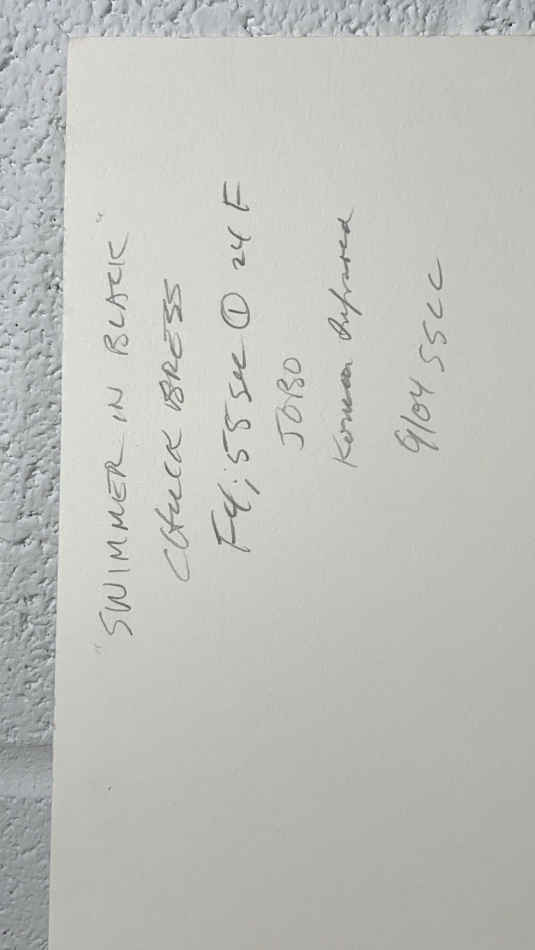 "SWIMMER IN BLACK"
CHUCK BRESS
F4; 55 sec @ 24 F
JOBO
Infrared
9/04 SSCC